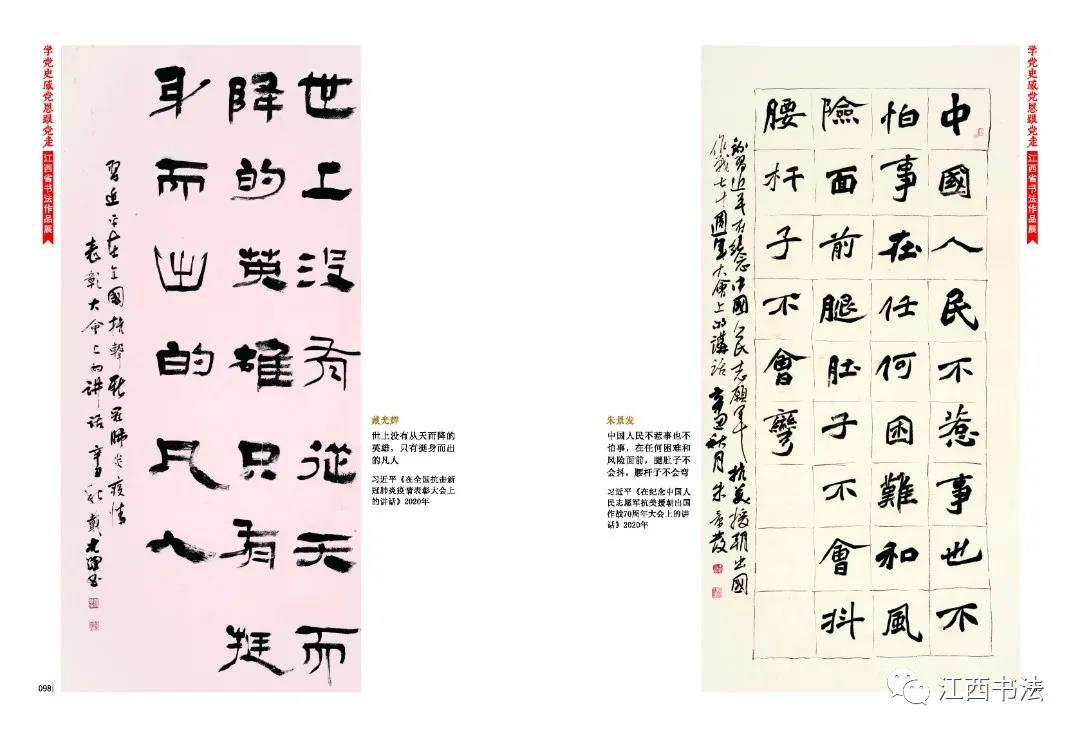 学党史感党恩跟党走
江西省书法作品展
世上没有從天而
降的英雄只有挺
身而出的凡人
習近平在全國抗擊新冠肺炎疫情
表彰大会上的讲话 辛丑秋 戴光輝書
戴光辉
世上没有从天而降的
英雄，只有挺身而出
的凡人
习近平《在全国抗击新
冠肺炎疫情表彰大会上
的讲话》2020年
098
朱景发
中国人民不惹事也不
怕事，在任何困难和
风险面前，腿肚子不
会抖，腰杆子不会弯
习近平《在纪念中国人
民志愿军抗美援朝出国
作战70周年大会上的讲
话》2020年
中國人民不惹事也不
怕事在任何困難和風
險面前腿肚子不會抖
腰杆子不會彎
習近平在紀念中國人民志願軍抗美援朝出國
作戰七十週年大會上的講話 辛丑秋月朱景發
学党史感党恩跟党走
江西省书法作品展
江西书法